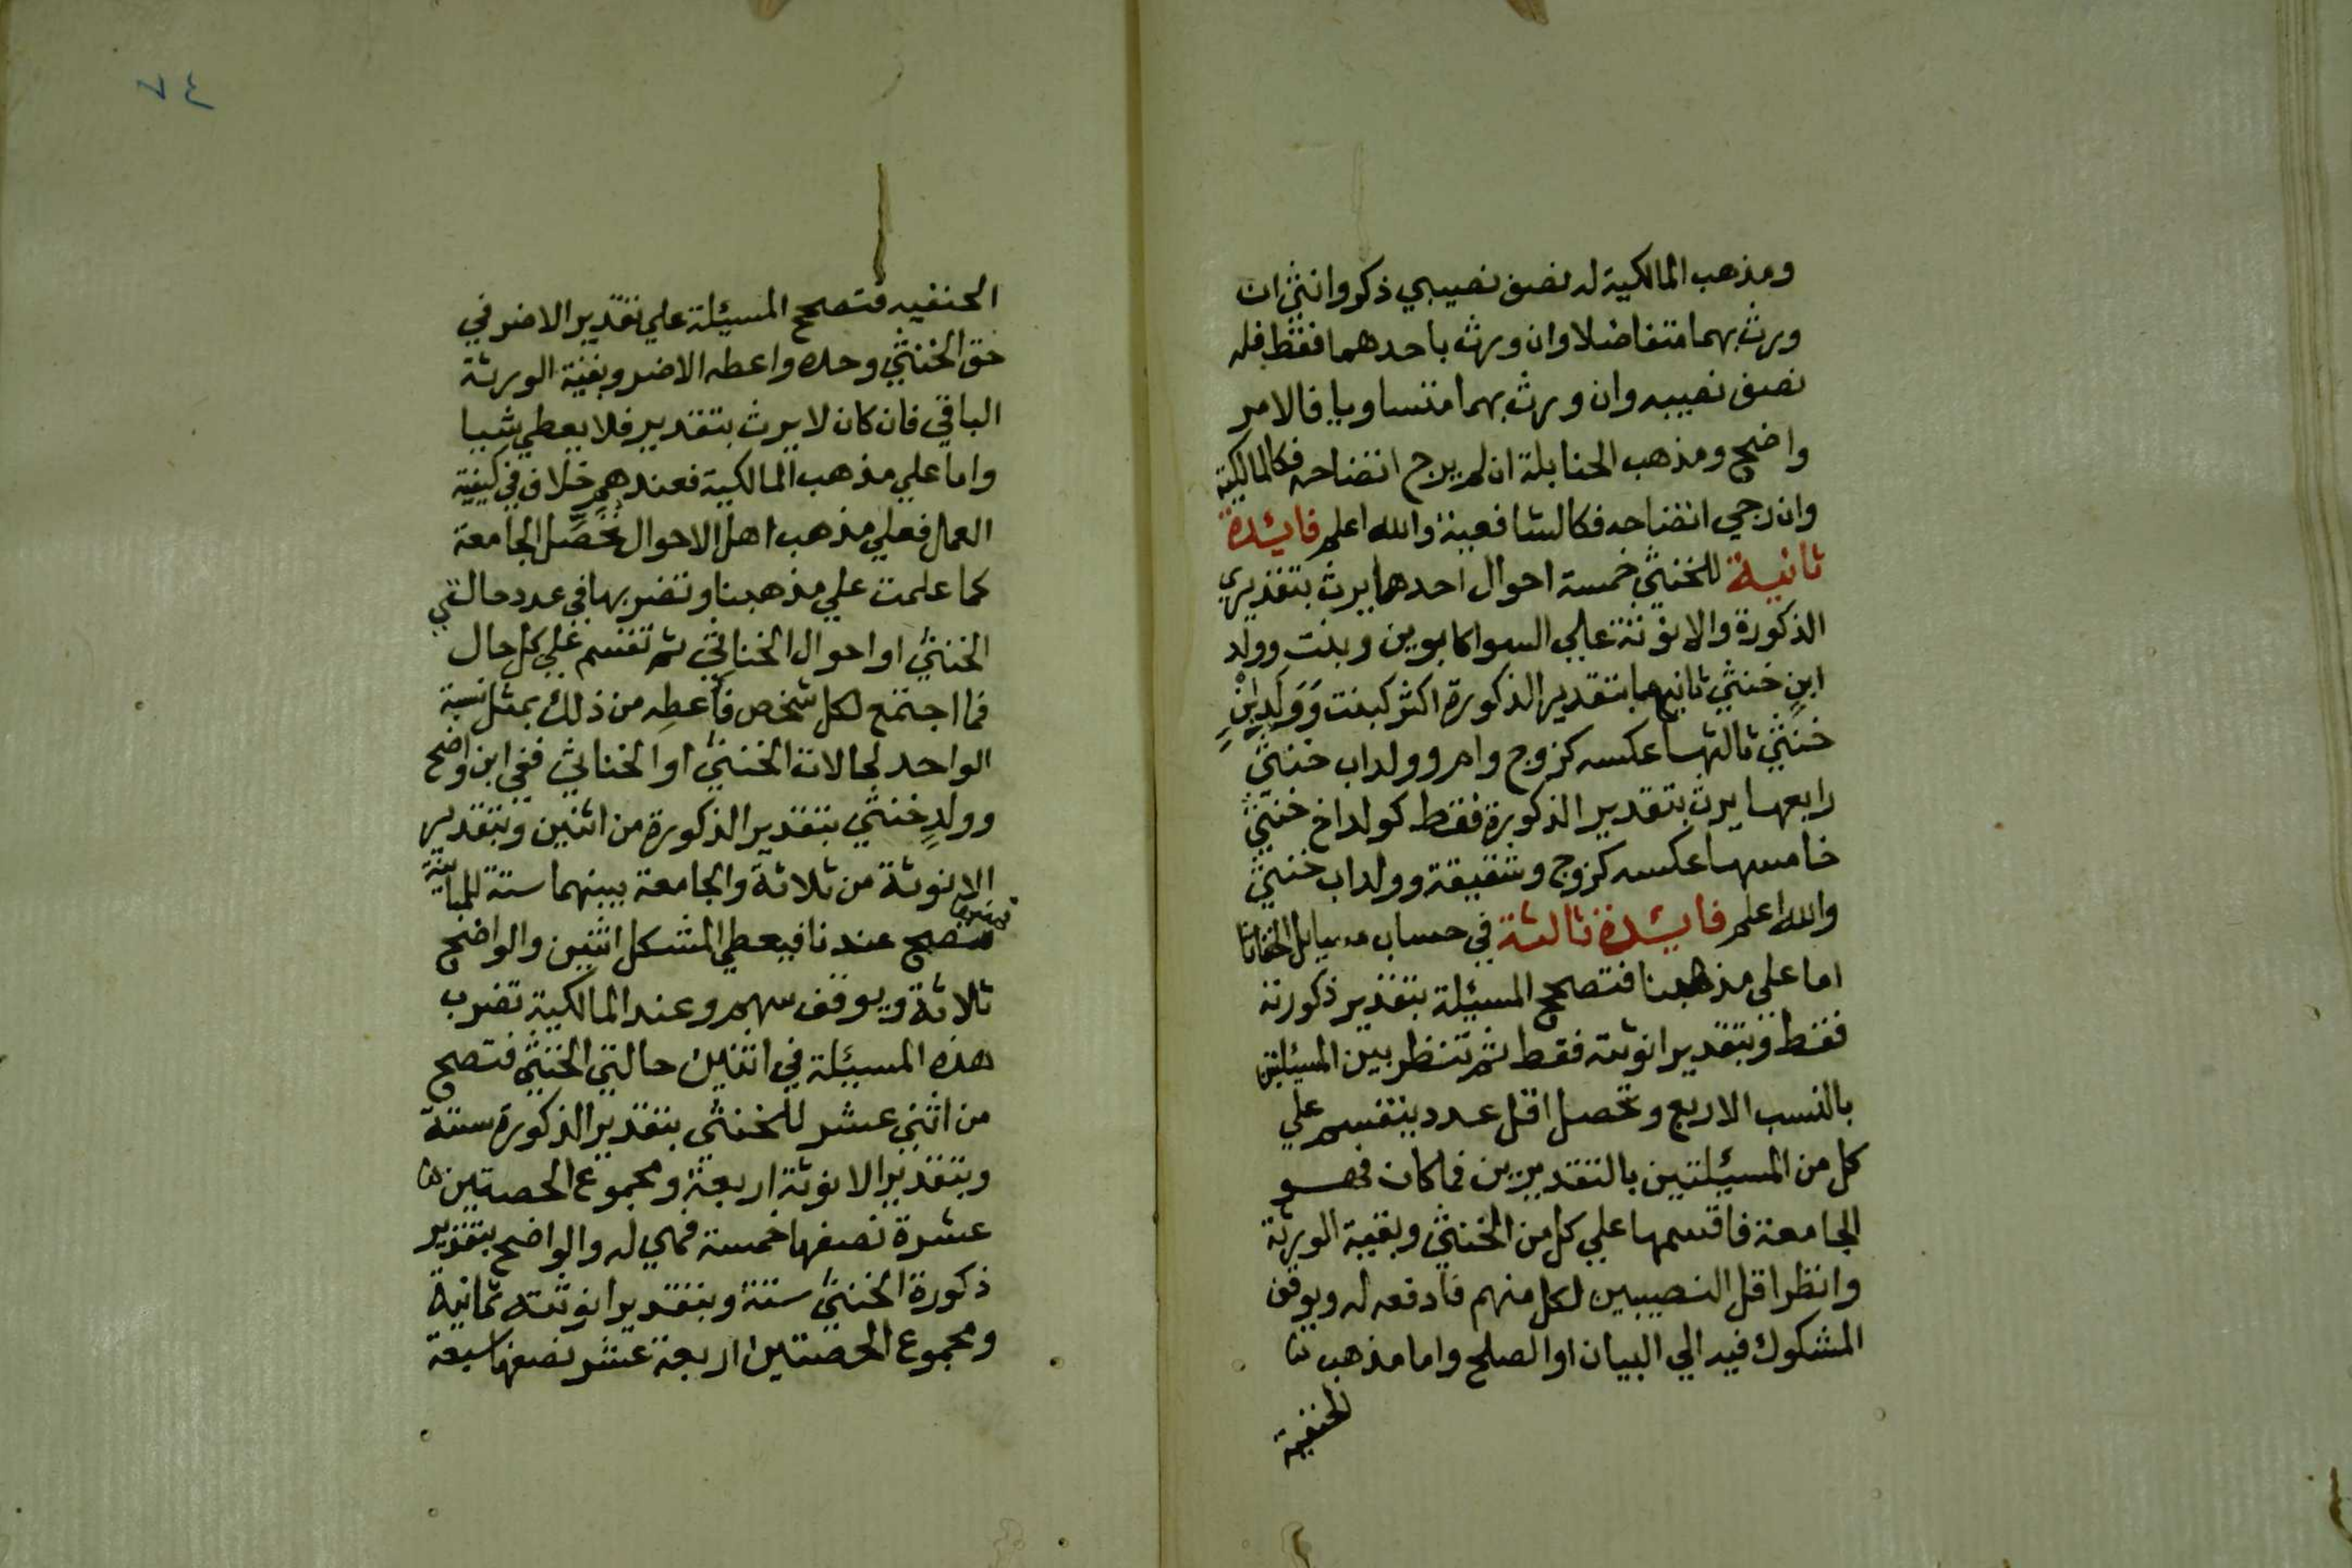 ومذهب المالكية له نصف نصيبي ذكر وانثي ان
ورث بهما متفاضلا وان ورث باحدهما فقط فله
نصف نصيبه وان ورث بهما متساويا فالامر
واضح ومذهب الحنابلة ان لم يرج اتضاحه فكالمالكية
وان رجي اتضاحه فكالشافعية والله اعلم فايئدة
ثانيـة للخنثي خمسة احوال احدها يرث بتقديري
الذكورة والانوثة علي السوا كابوين وبنت وولد
ابن خنثي ثانيها بتقدير الذكورة اكثر كبنت وولد ابن
خنثي ثالثها عكسه كزوج وام وولد اب خنثي
رابعها يرث بتقدير الذكورة فقط كولد اخ خنثي
خامسها عكسه كزوج وشقيقة وولد اب خنثي
والله اعلم فايئدة ثالثة في حساب مسايل الخناثا
اما علي مذهبنا فتصحح المسيئلة بتقدير ذكورته
فقط وبتقدير انوثته فقط ثم تنظر بين المسيئلتين
بالنسب الاربع وتحصل اقل عدد ينقسم علي
كل من المسيئلتين بالتقديرين فما كان فهـو
الجامعة فاقسمها علي كل من الخنثي وبقية الورثة
وانظر اقل النصيبين لكل منهم فادفعه له ويوقف
المشكوك فيه الي البيان او الصلح واما مذهب
الحنفية
٧٤
الحنفيه فتصحح المسيئلة علي تقدير الاضر في
حق الخنثي وحده واعطه الاضر وبقية الورثة
الباقي فان كان لا يرث بتقدير فلا يعطي شيا
واما علي مذهب المالكية فعندهم خلاف في كيفية
العمل فعلي مذهب اهل الاحوال تحصل الجامعة
كما علمت علي مذهبنا وتضربها في عدد حالتي
الخنثي او احوال الخناثي ثم تقسم علي كل حال
فما اجتمع لكل شخص فاعطه من ذلك بمثل نسبة
الواحد لحالات الخنثي او الخناثي ففي ابن واضح
وولد خنثي بتقدير الذكورة من اثنين وبتقدير
الانوثة من ثلاثة والجامعة بينهما ستة للمباينة
تصح عندنا فيعطي المشكل اثنين والواضح
ثلاثة ويوقف سهم وعند المالكية تضرب
هذه المسيئلة في اثنين حالتي الخنثي فتصح
من اثني عشر للخنثي بتقدير الذكورة ستة
وبتقدير الانوثة اربعة ومجموع الحصتين
عشرة نصفها خمسة فهي له والواضح بتقدير
ذكورة الخنثي ستة وبتقدير انوثته ثمانية
ومجموع الحصتين اربعة عشر نصفها سبعة